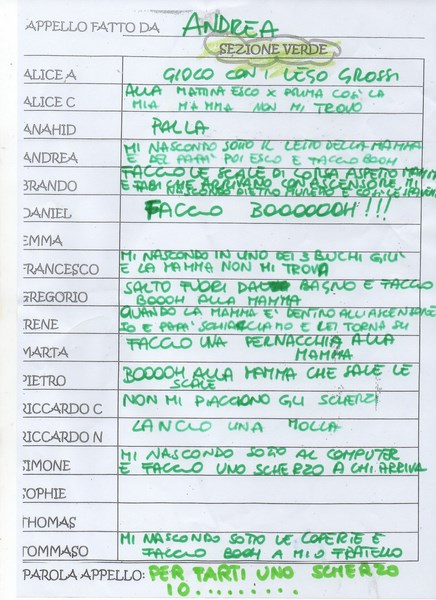 APPELLO FATTO DA ANDREA
SEZIONE VERDE
ALICE A GIOCO CON I LEGO GROSSI
ALICE C ALLA MATTINA ESCO X PRIMA COSÌ LA
MIA MAMMA NON MI TROVA
ANAHID PALLA
ANDREA MI NASCONDO SOTTO IL LETTO DELLA MAMMA
E DEL PAPÀ POI ESCO E FACCIO BOOH
BRANDO FACCIO LE SCALE DI CORSA ASPETTO MAMMA
E FABI CHE ARRIVANO CON ASCENSORE MI
NASCONDO DIETRO MURETTO E COSÌ LE
DANIEL FACCIO BOOOOOOH!!!
EMMA
FRANCESCO MI NASCONDO IN UNO DEI 3 BUCHI GIÙ
E LA MAMMA NON MI TROVA
GREGORIO SALTO FUORI DAL BAGNO E FACCIO
BOOOH ALLA MAMMA
IRENE QUANDO LA MAMMA E' DENTRO ALL'ASCENSORE
IO E PAPA' SCHIACCIAMO E LEI TORNA SU
MARTA FACCIO UNA PERNACCHIA ALLA
MAMMA
PIETRO BOOOOH ALLA MAMMA CHE SALE LE
SCALE
RICCARDO C NON MI PIACCIONO GLI SCHERZI
RICCARDO N LANCIO UNA MOLLA
SIMONE MI NASCONDO SOTTO AL COMPUTER
E FACCIO UNO SCHERZO A CHI ARRIVA
SOPHIE
THOMAS
TOMMASO MI NASCONDO SOTTO LE COPERTE E
FACCIO BOOH A MIO FRATELLO
PAROLA APPELLO: PER FARTI UNO SCHERZO
IO.........